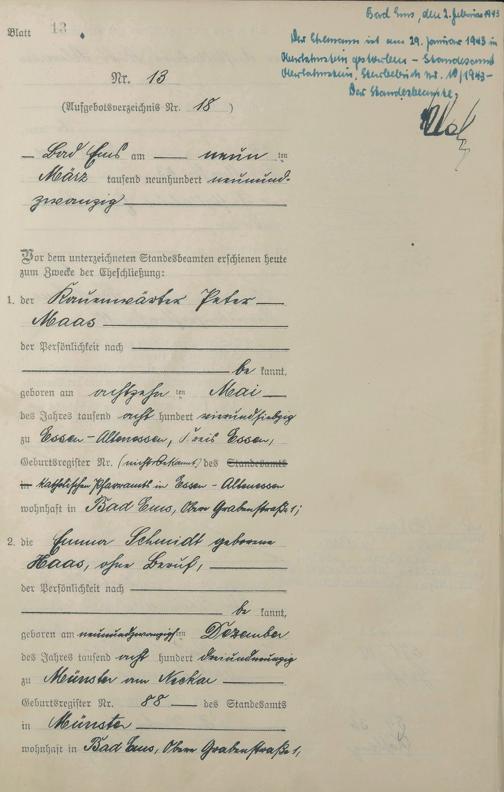 Blatt 13
Bad Ems, den 2. Februar 1943
Der Ehemann ist am 29. Januar 1943 in
Oberlahnstein gestorben - Standesamt
Oberlahnstein, Sterbebuch Nr. 10/1943-
Der Standesbeamte,
Nr. 13
(Aufgebotsverzeichnis Nr. 18)
Bad Ems am neun ten
März tausend neunhundert neunund-
zwanzig
Vor dem unterzeichneten Standesbeamten erschienen heute
zum Zwecke der Eheschließung:
1. der Kauenwärter Peter
Maas
der Persönlichkeit nach
be kannt,
geboren am achtzehn ten Mai
des Jahres tausend acht hundert vierundsiebzig
zu Essen-Altenessen, Kreis Essen,
Geburtsregister Nr. (nicht bekannt) des Standesamts
in katholischen Pfarramts in Essen-Altenessen
wohnhaft in Bad Ems, Obere Grabenstraße 1;
2. die Emma Schmidt geborene
Haas, ohne Beruf,
der Persönlichkeit nach
be kannt,
geboren am neunundzwanzigs ten Dezember
des Jahres tausend acht hundert dreiundneunzig
zu Münster am Neckar
Geburtsregister Nr. 88 des Standesamts
in Münster
wohnhaft in Bad Ems, Obere Grabenstraße 1,